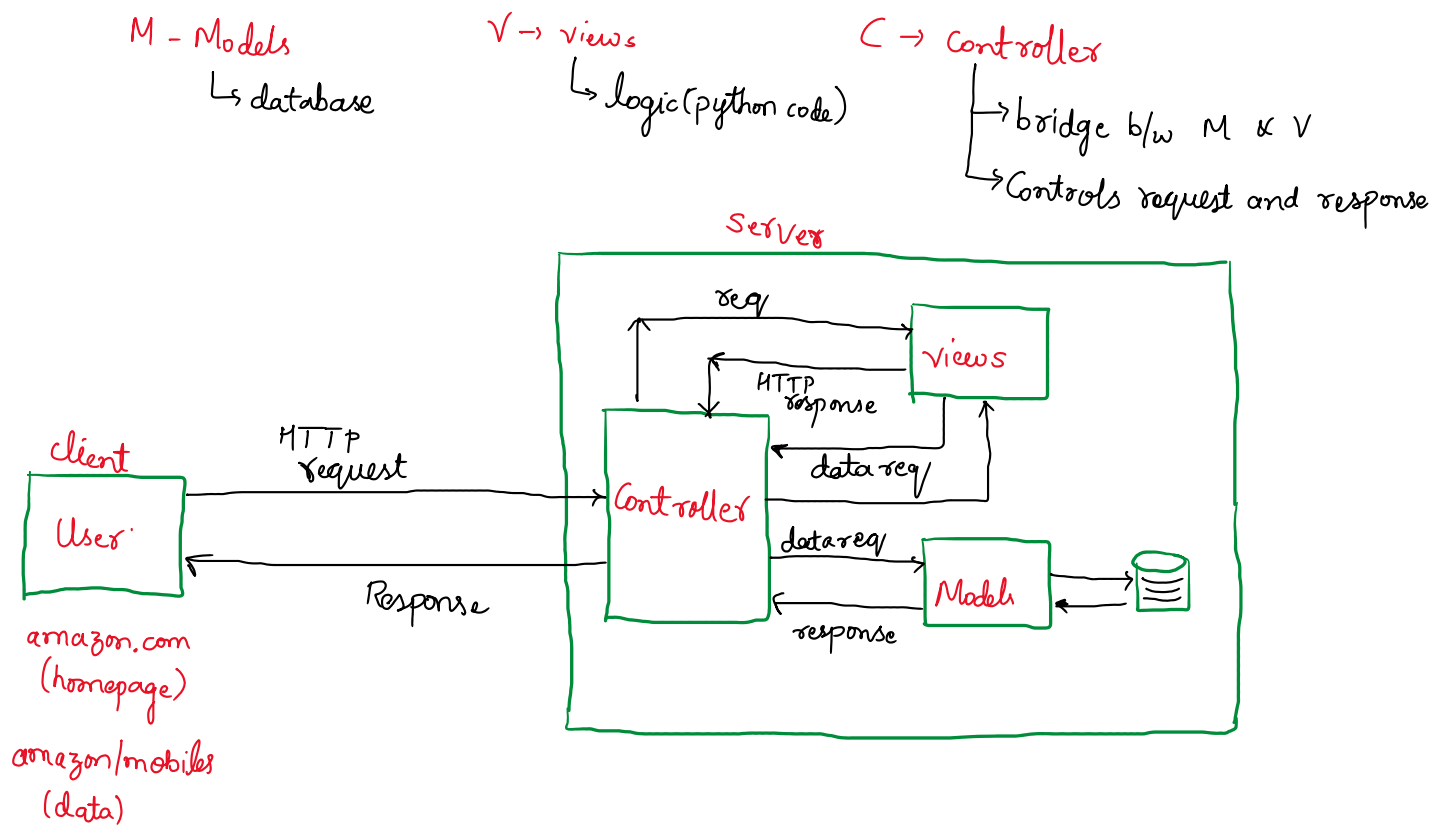 M - Models
↳ database
V → views
↳ logic (python code)
C → Controller
→ bridge b/w M & V
→ Controls request and response
Server
req
views
HTTP
response
data req
Client
User
HTTP
request
Controller
Response
data req
Models
response
amazon.com
(homepage)
amazon/mobiles
(data)